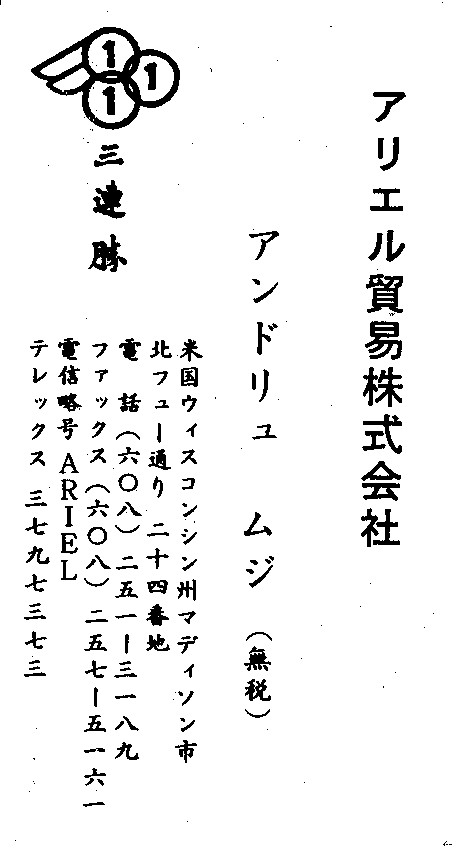 アリエル貿易株式会社
アンドリュ ムジ (無税)
米国ウィスコンシン州マディソン市
北フュー通り 二十四番地
電話(六〇八)二五一ー三一八九
ファックス(六〇八)二五七ー五一六一
電信略号 ARIEL
テレックス 三七九七三七三
1
1
1
三連勝